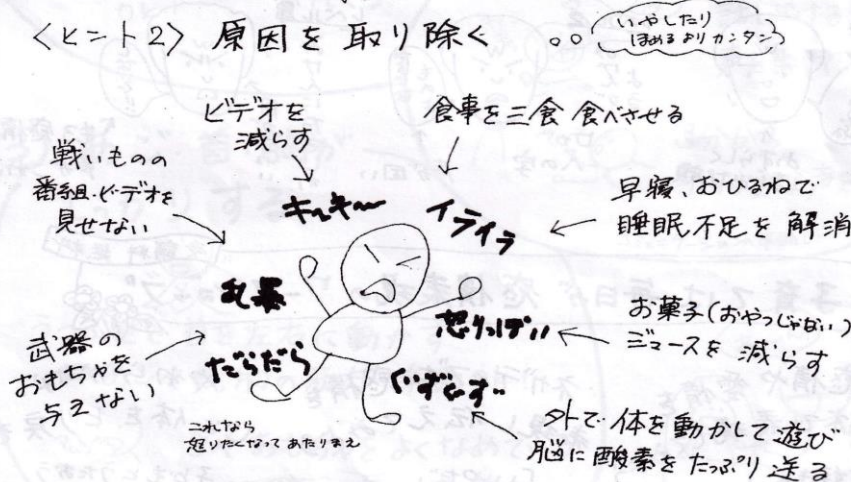 <ヒント2> 原因を取り除く
いやしたり
ほめるよりカンタン
ビデオを
減らす
食事を三食 食べさせる
戦いものの
番組・ビデオを
見せない
キーキー
イライラ
早寝、おひるねで
睡眠不足を解消
乱暴
怒りっぽい
お菓子(おやつじゃない)
ジュースを減らす
武器の
おもちゃを
与えない
だらだら
ぐずぐず
これなら
怒りたくなってあたりまえ
外で体を動かして遊び
脳に酸素をたっぷり送る